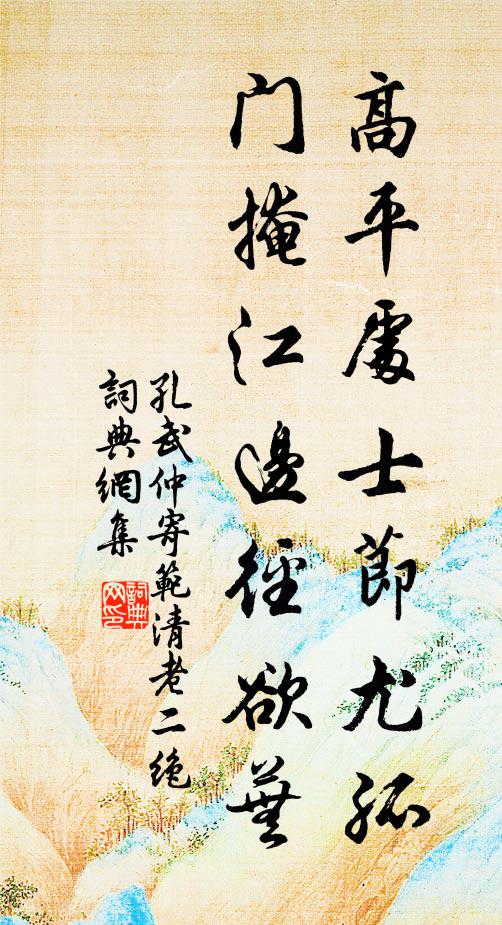 高平處士節尤孤
门掩江邊徑欲蕪
孔武仲寄範清老二絶
詞典網集
詞典网印